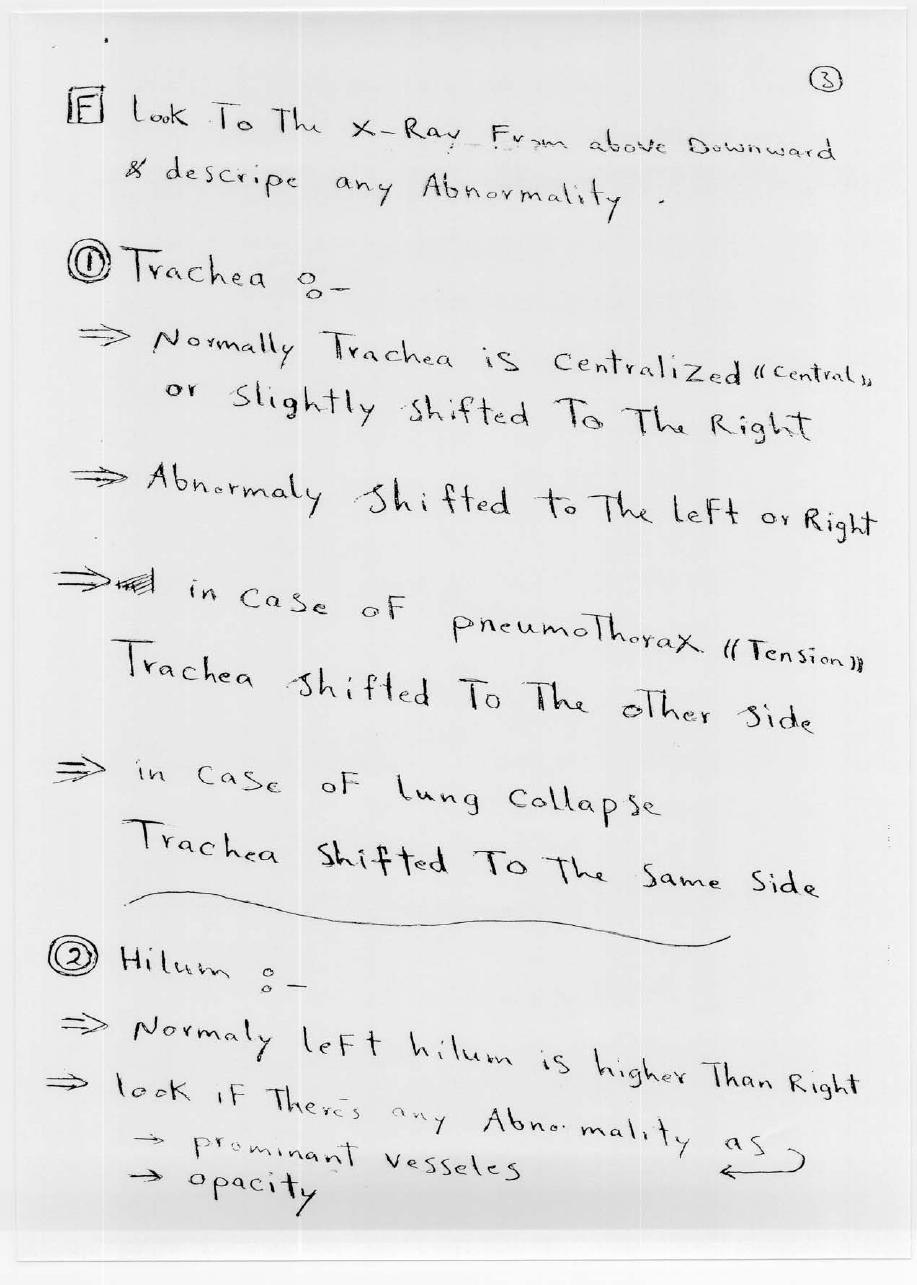 3
F Look To The X-Ray From above Downward
& descripe any Abnormality .
1 Trachea :-
⇒ Normally Trachea is Centralized "Central"
or slightly shifted To The Right
⇒ Abnormaly shifted to The left or Right
⇒ in Case of pneumoThorax "Tension"
Trachea shifted To The oTher side
⇒ in Case of lung Collapse
Trachea shifted To The same side
2 Hilum :-
⇒ Normaly left hilum is higher Than Right
⇒ look if There's any Abnormality as
→ prominant vesseles
→ opacity